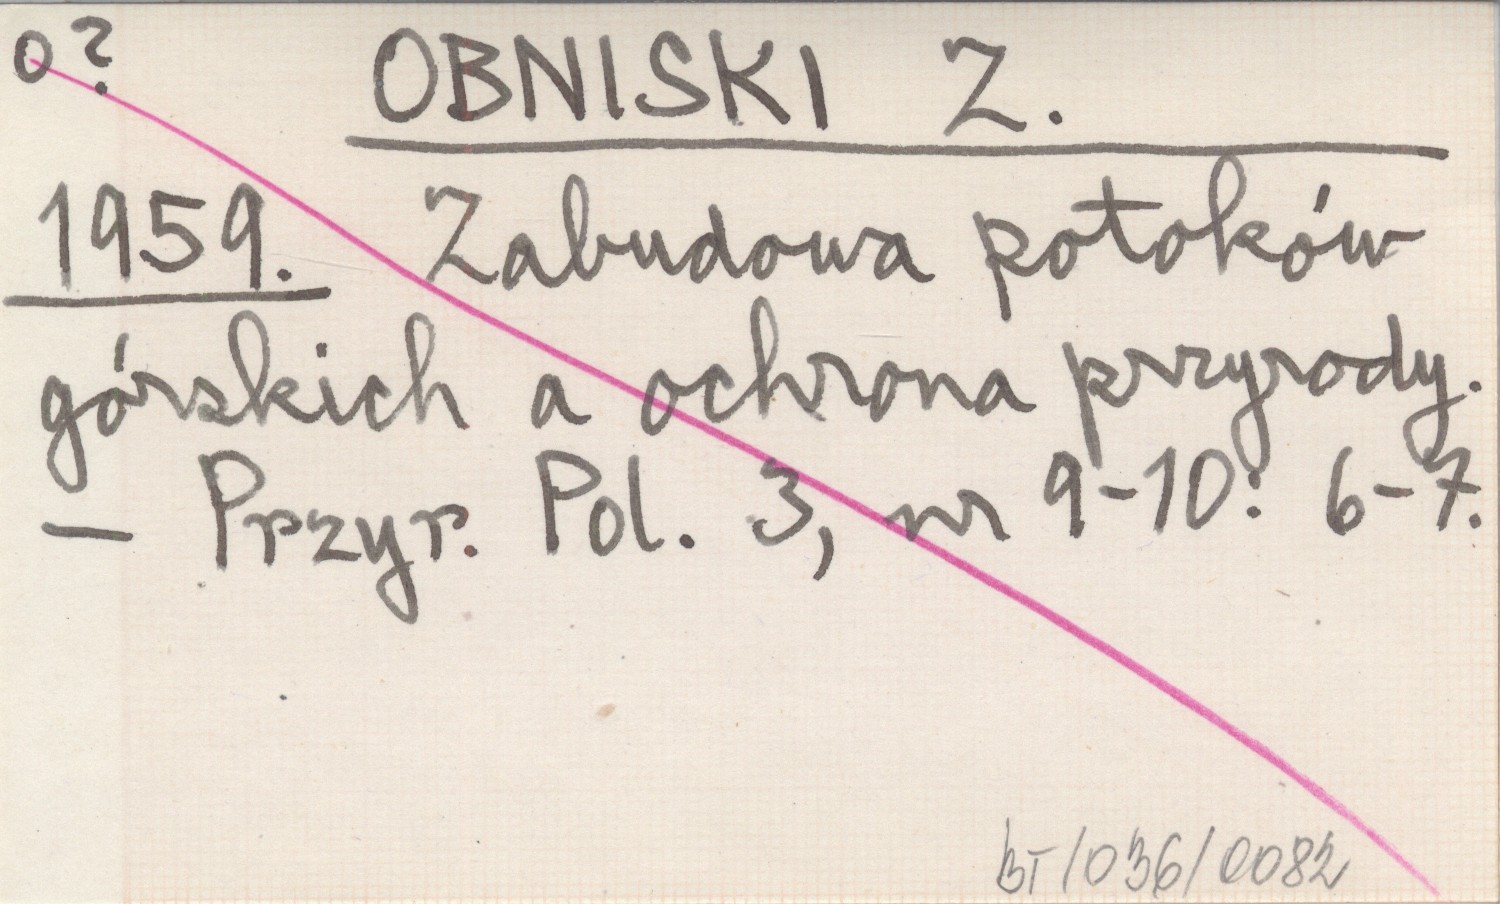 o?
OBNISKI Z.
1959. Zabudowa potoków
górskich a ochrona przyrody.
— Przyr. Pol. 3, nr 9-10: 6-7.
BT/036/0082